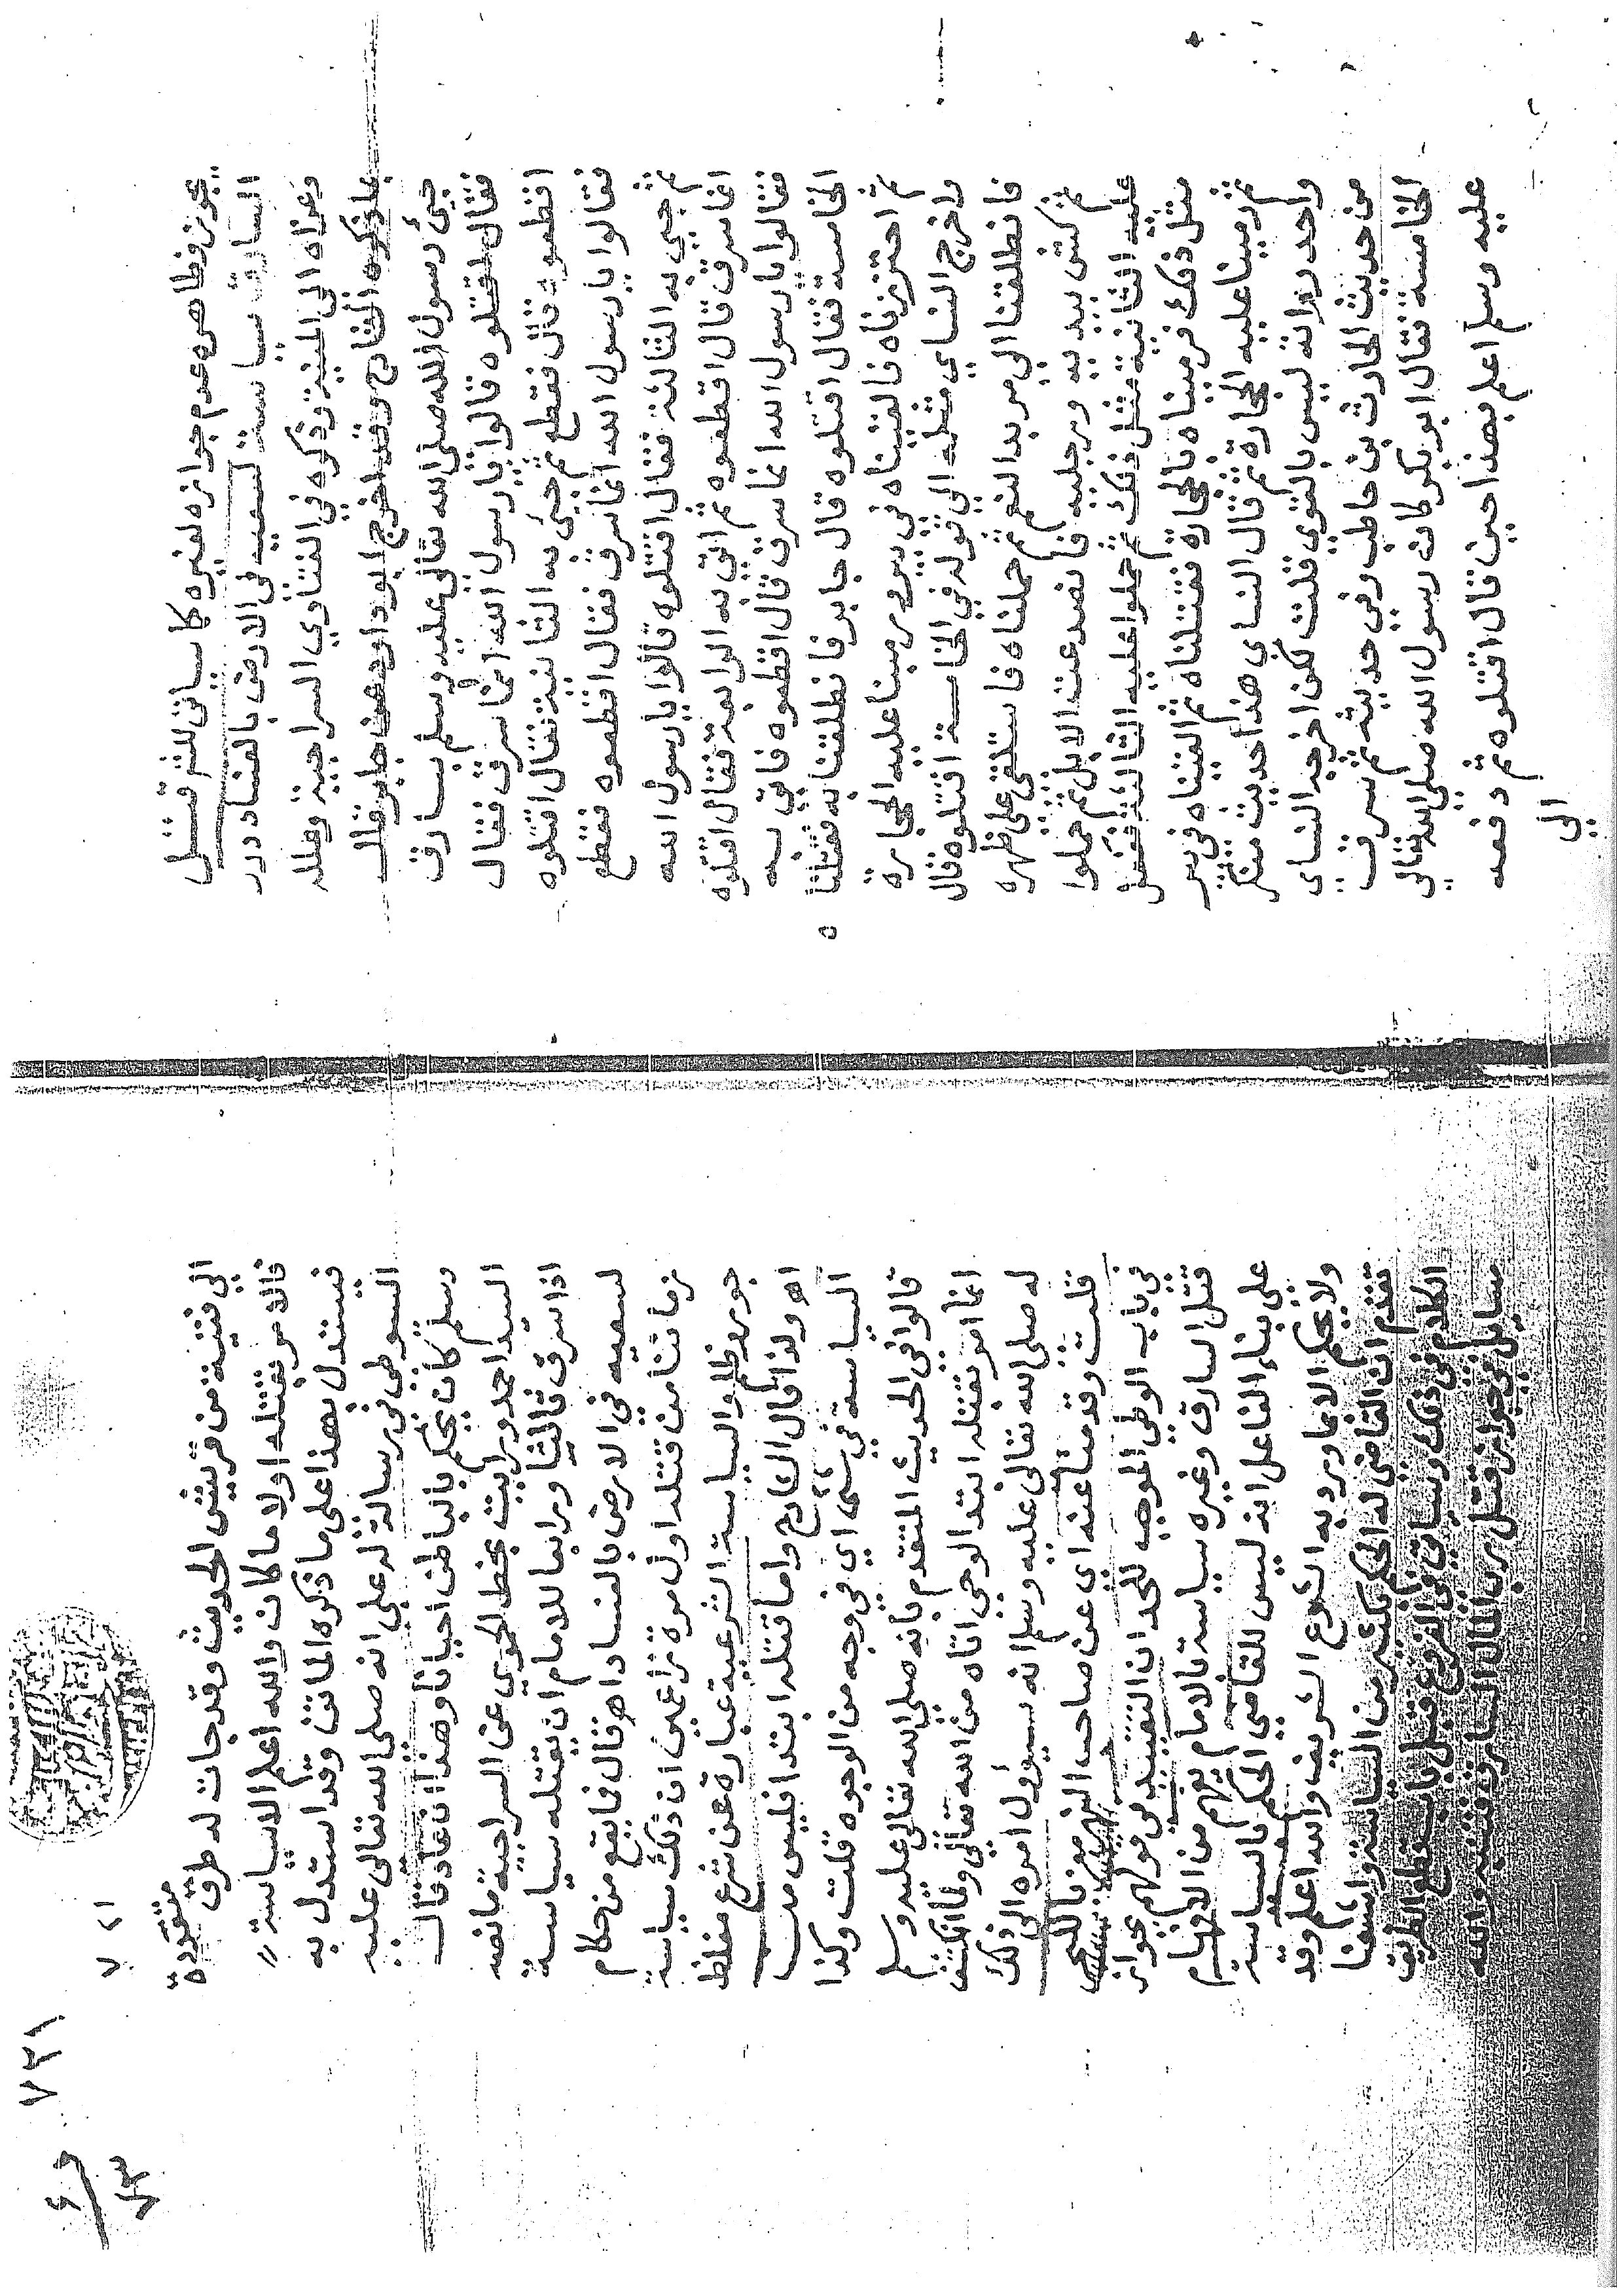 يجوز فظاهره عدم جوازه لغيره كما سياتي للشر قتل
السارق سياسة لسعيه في الارض بالفساد درر
وعزاه الى المنية وذكره في الفتاوي السراجية وعلله
بما ذكره الشارح وقد اخرج ابو داود عن جابر قال
جيئ رسول الله صلى الله تعالى عليه وسلم بسارق
فقال اقتلوه قالوا يا رسول الله انما سرق فقال
اقطعوه قال فقطع ثم جيئ به الثانية فقال اقتلوه
فقالوا يا رسول الله انما سرق فقال اقطعوه فقطع
ثم جيئ به الثالثة فقال اقتلوه قالوا يا رسول الله
انما سرق قال اقطعوه ثم اتي به الرابعة فقال اقتلوه
فقالوا يا رسول الله انما سرق قال اقطعوه فاتي به
الخامسة فقال اقتلوه قال جابر فانطلقنا به فقتلنا
ثم اجتررناه فالقيناه في بير ورمينا عليه الحجارة
واخرج النساي مثله الى قوله في الخامسة اقتلوه قال
فانطلقنا الى مربد النعم ثم حملناه فاستلقى على ظهره
ثم كشر بيديه ورجليه فانصدعت الابل ثم حملوا
عليه الثانية مثل ذلك ثم حملوا عليه الثالثة ففعل
مثل ذلك فرميناه بالحجارة فقتلناه ثم القيناه في بير
ثم رمينا عليه الحجارة ثم قال النساي هذا حديث منكر
واحد رواته ليس بالقوي قلت لكن اخرجه النساي
من حديث الحارث بن حاطب وفي حديثه ثم سرق
الخامسة فقال ابو بكر كان رسول الله صلى الله تعالى
عليه وسلم اعلم بهذا حين قال اقتلوه ثم دفعه
الى
٧٣١
٧٢١
الى فتية من قريش الحديث وقد جات له طرق متعددة
فالامر بقتله اولا ما كان والله اعلم الا سياسة
فيستدل بهذا على ما ذكره الماتن وقد استدل به
السيوطي في رسالة له على انه صلى الله تعالى عليه
وسلم كان يحكم بالباطن احيانا وهذا
السيد احمد ورايت بخط الحموي عن السراجية ما نصه
اذا سرق ثالثا ورابعا للامام ان يقتله سياسة
لسعيه في الارض بالفساد اهـ قال فما يقع من حكام
زماننا من قتله اول مرة زاعمين ان ذلك سياسة
جور وظلم والسياسة الشرعية عبارة عن شرع مغلظ
اهـ ولذا قال الشارح واما قتله ابتدا فليس من
السياسة في شئ اي في وجه من الوجوه قلت وكذا
قالوا في الحديث المتقدم بانه صلى الله تعالى عليه وسلم
انما امر بقتله ابتدا لوحي اتاه من الله تعالى ولما انكشف
له صلى الله تعالى عليه وسلم انه سيؤول امره الى ذلك
قلت وقد منا عنه اي عن صاحب النهر معزيا للبحر
في باب الوطي الموجب للحد ان التقييد في قولهم بجواز
قتل السارق وغيره سياسة بالامام يفهم من الافهام
على بناء الفاعل انه ليس للقاضي الحكم بالسياسة
ولا يحكم الا بما ورد به الشرع الشريف والله اعلم وقد
تقدم ان القاضي له الحكم بكثير من السياسة واشبعنا
الكلام في ذلك وسياتي في الفروع قبيل باب قطع الطريق
مسايل في جواز قتل رب المال السارق فتنبه والله